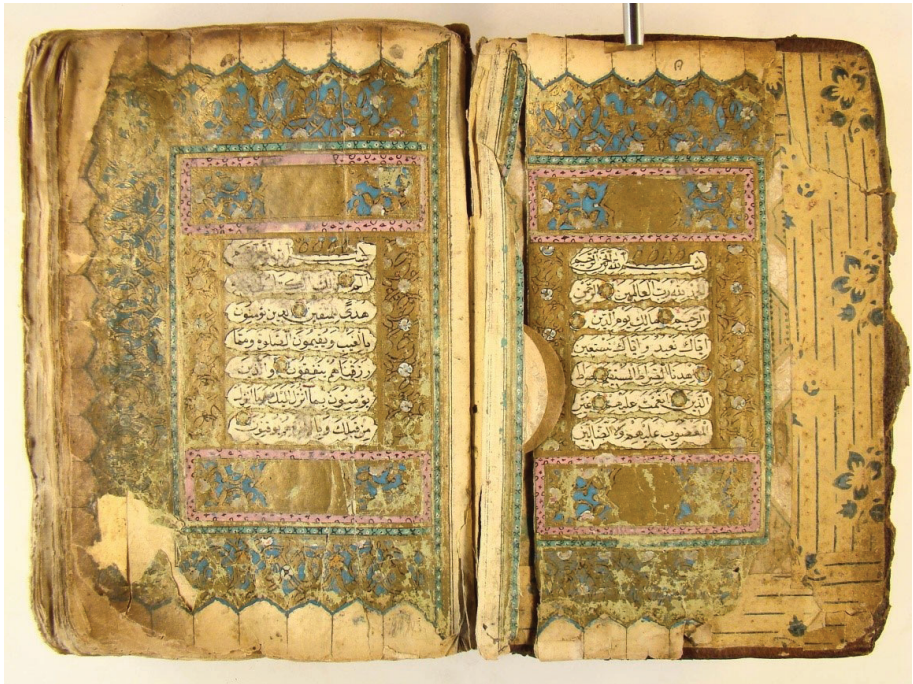 بسم الله الرحمن الرحيم
الحمد لله رب العالمين الرحمن
الرحيم مالك يوم الدين
اياك نعبد واياك نستعين
اهدنا الصراط المستقيم صراط
الذين انعمت عليهم غير
المغضوب عليهم ولا الضالين
بسم الله الرحمن الرحيم
الم ذلك الكتاب لا ريب فيه
هدى للمتقين الذين يؤمنون
بالغيب ويقيمون الصلوة ومما
رزقناهم ينفقون والذين
يؤمنون بما انزل اليك وما انزل
من قبلك وبالاخرة هم يوقنون